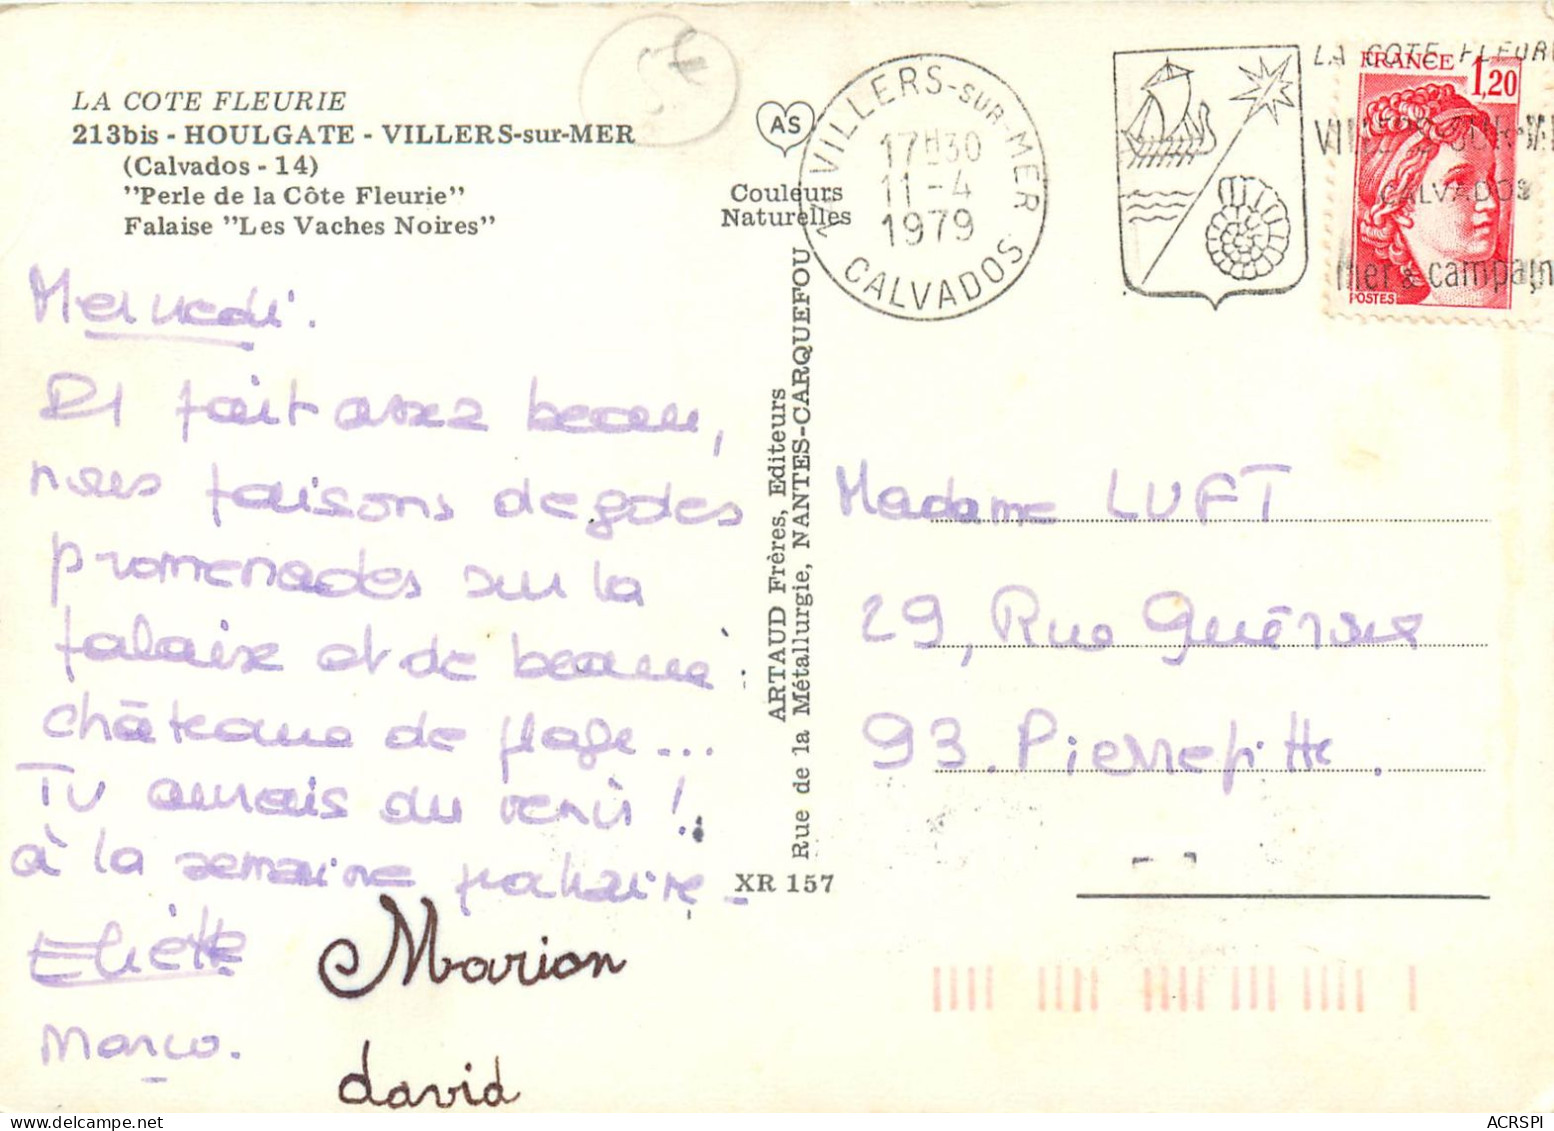 LA COTE FLEURIE
213bis - HOULGATE - VILLERS-sur-MER
(Calvados - 14)
"Perle de la Côte Fleurie"
Falaise "Les Vaches Noires"
AS
Couleurs
Naturelles
14 VILLERS-SUR-MER
17H30
11-4
1979
CALVADOS
LA COTE FLEURI
VILLERS-SUR-M
CALVADOS
mer & campagn
FRANCE 1,20
POSTES
Mercredi.
Il fait assez beau,
nous faisons de gdes
promenades sur la
falaise et de beaux
châteaux de plage...
Tu aurais du venir !
à la semaine prochaine -
Eliette
Marco.
Marion
david
ARTAUD Frères, Editeurs
Rue de la Métallurgie, NANTES-CARQUEFOU
XR 157
Madame LUFT
29, Rue Guérsux
93. Pierrefitte.
ACRSPI